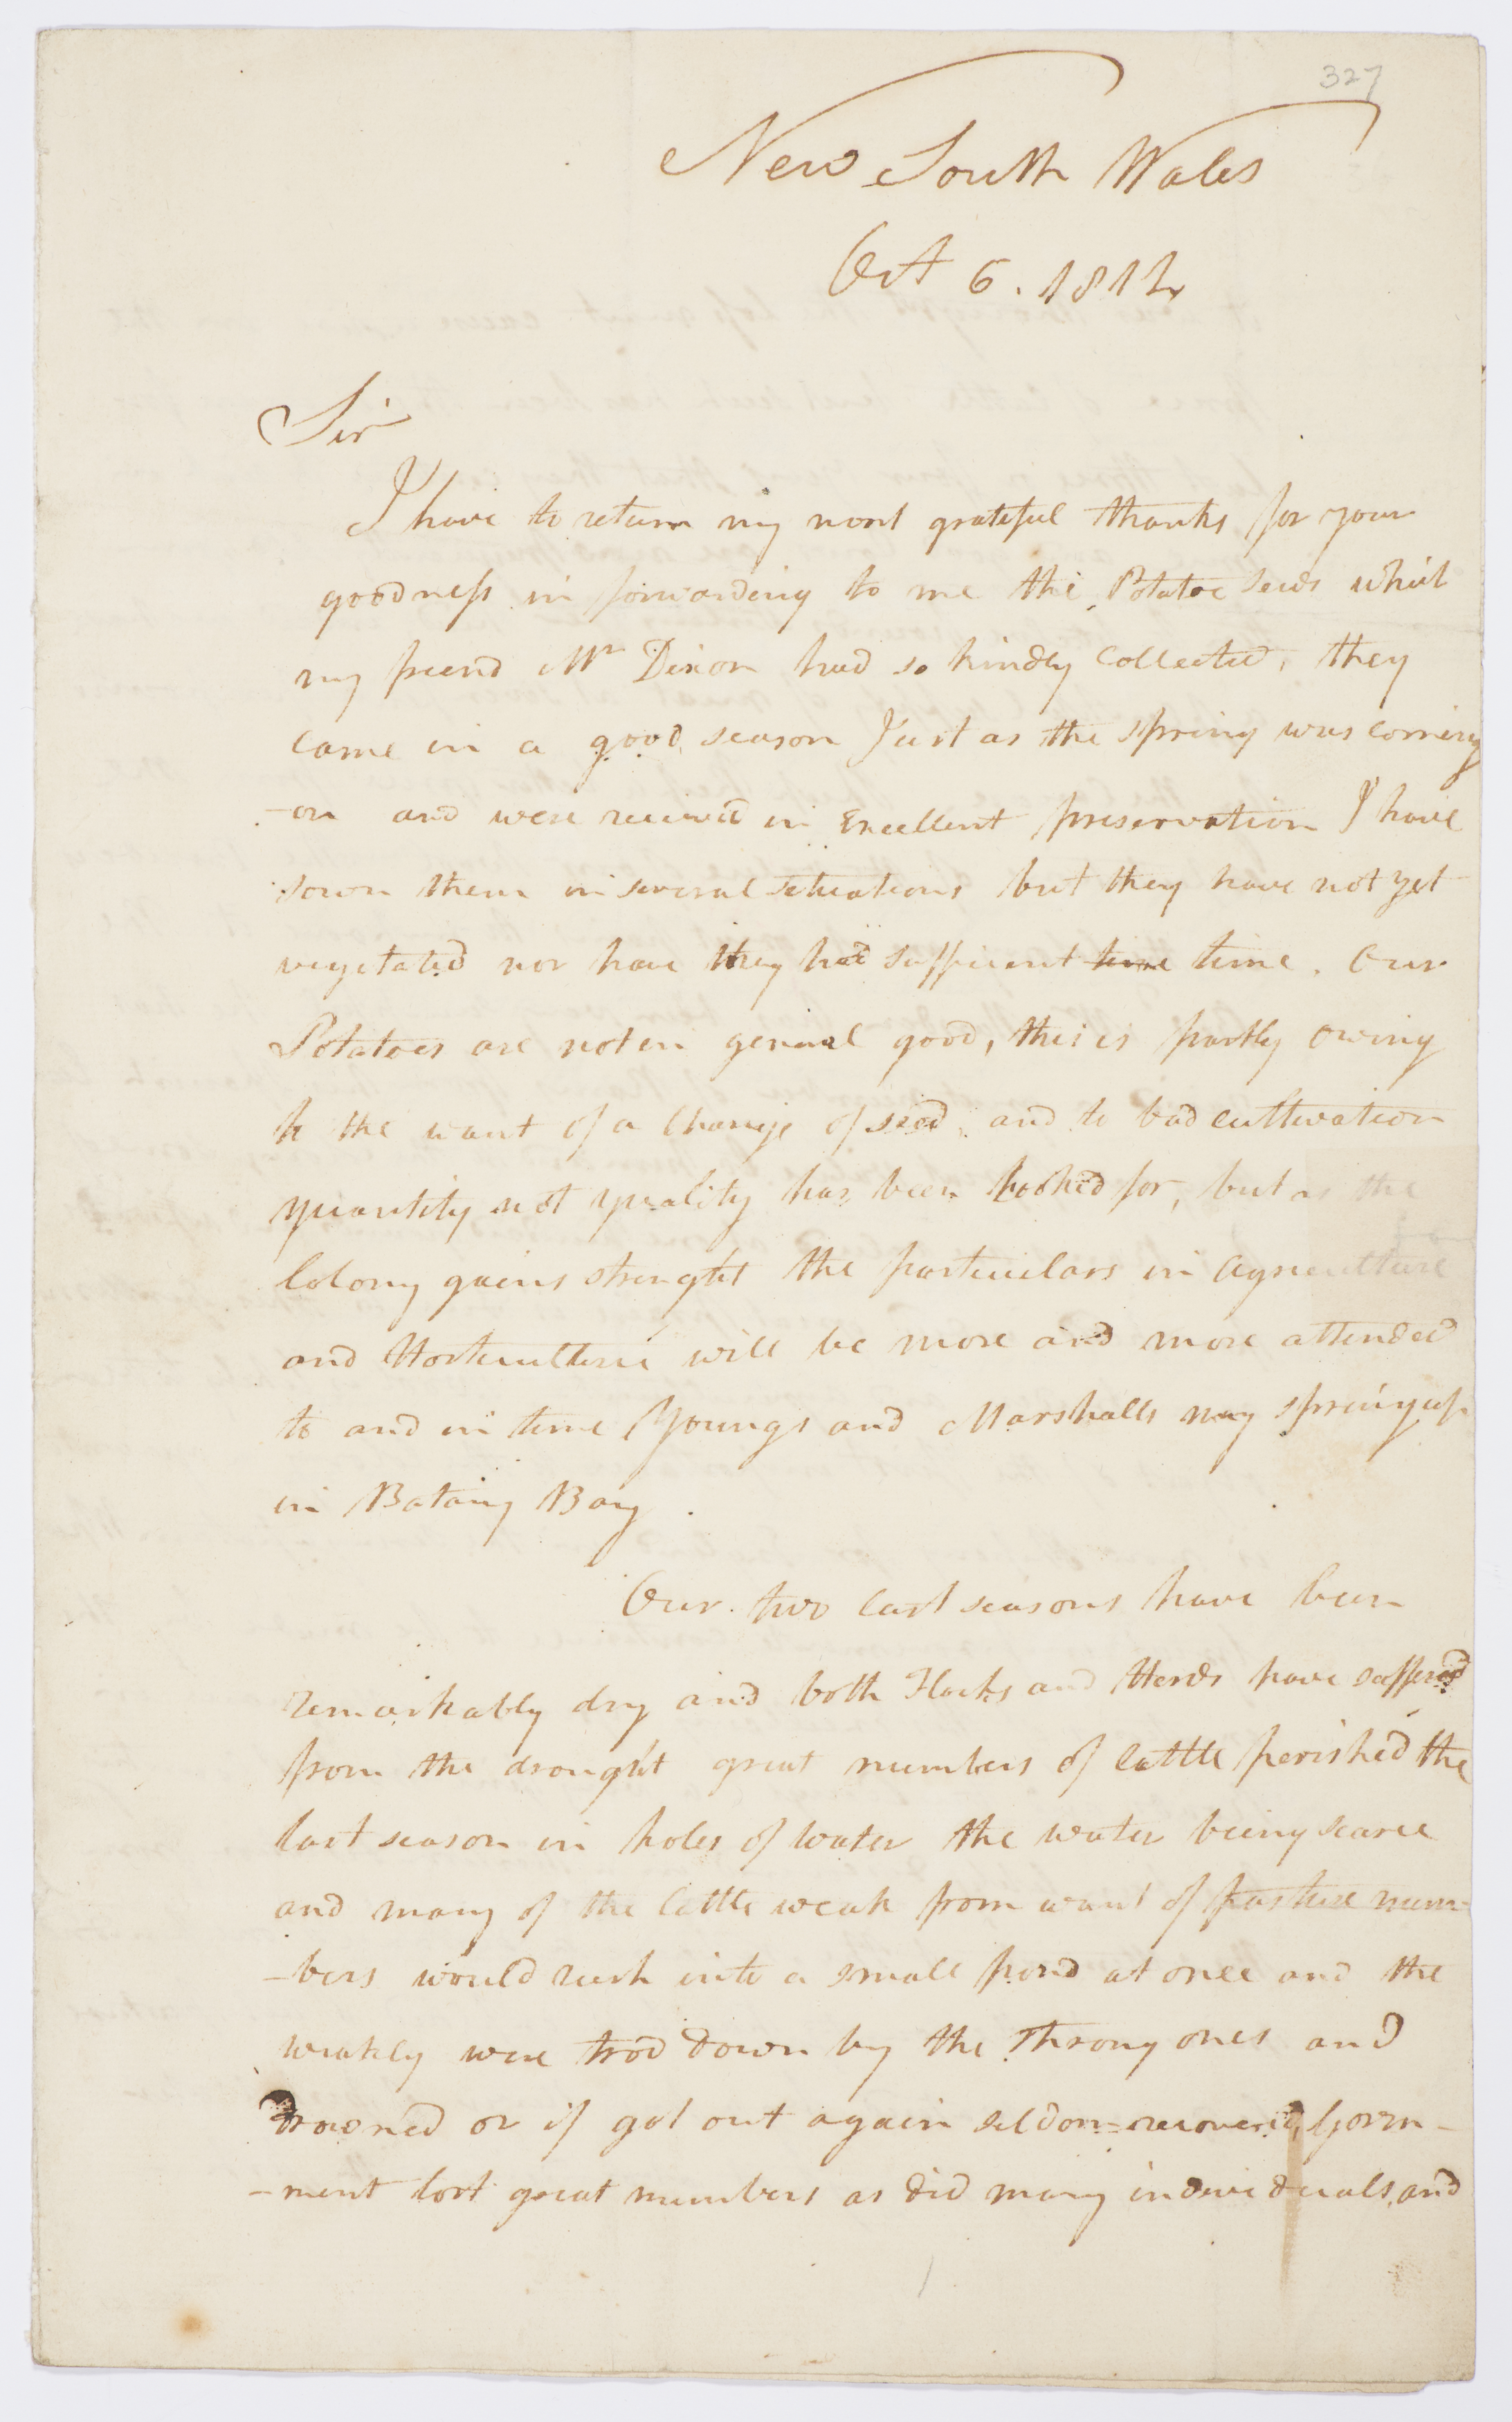 327
New South Wales
Oct 6. 1812
Sir
I have to return my most grateful thanks for your
goodness in forwarding to me the Potatoe seeds which
my friend Mr Dixon had so kindly collected, they
came in a good season Just as the spring was coming
-on and were received in Excellent preservation I have
sown them in several situations but they have not yet
vegetated nor have they had sufficient time time. Our
Potatoes are not in general good, this is partly owing
to the want of a Change of seed, and to bad cultivation
quantity not quality has been looked for, but as the
Colony gains strenght the particulars in Agriculture
and Horticulture will be more and more attended
to and in time Youngs and Marshalls may spring up
in Botany Bay.
Our two last seasons have been
remarkably dry and both Flocks and Herds have suffered
from the drought great numbers of Cattle perished the
last season in holes of water the water being scarce
and many of the Cattle weak from want of pasture num-
-bers would rush into a small pond at once and the
weakly were trod down by the strong ones and
drowned or if got out again seldom recovered, Govern-
-ment lost great numbers as did many individuals, and